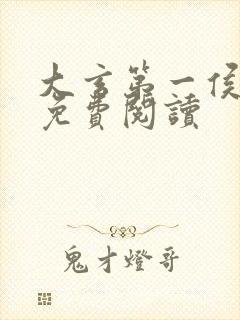 大言第一侯
免費閱讀
鬼才燈哥